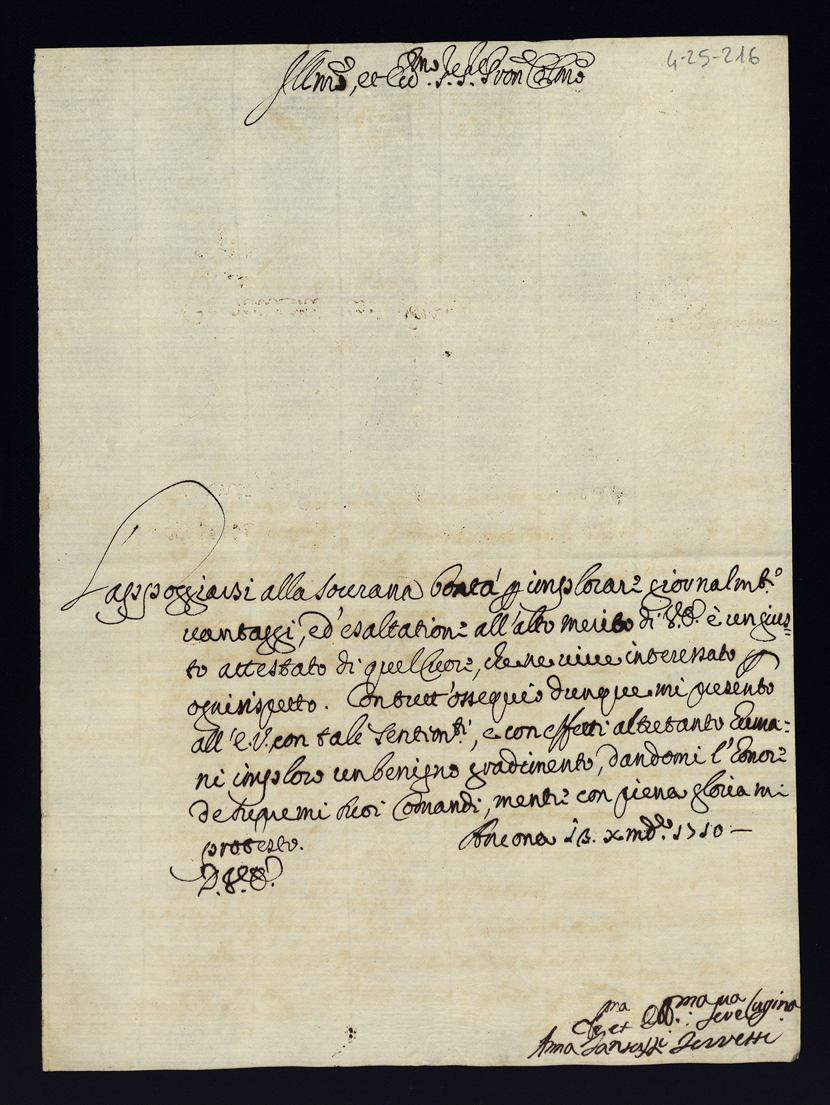 4-25-216
Illmo, et Ecc.mo S.re S.re Pron Colmo
L'appoggiarsi alla sourana bontà p implorar giornalmte
uantaggi, ed'esaltation all'alto merito di V.E. è un gius=
to attestato di quel Cuor, che ne uiue interessato p
ogni rispetto. Con tutt'ossequio dunque mi presento
all'E.V. con tali sentimti, e con effetti altretanto
ni imploro un benigno gradimento, dandomi l'honor
de suoi Comandi, mentr con piena gloria mi
protesto. Ancona 13. xmbre 1710 —
D.V.E.
Seruetti